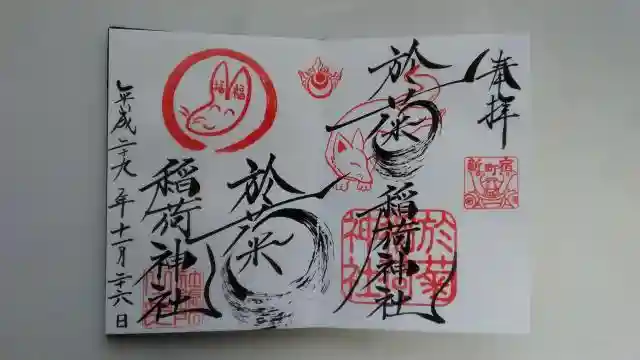 奉拝
於菊
稲荷神社
新町宿
於菊稲荷神社
福福
於菊
稲荷神社
平成二十九年十一月二十六日